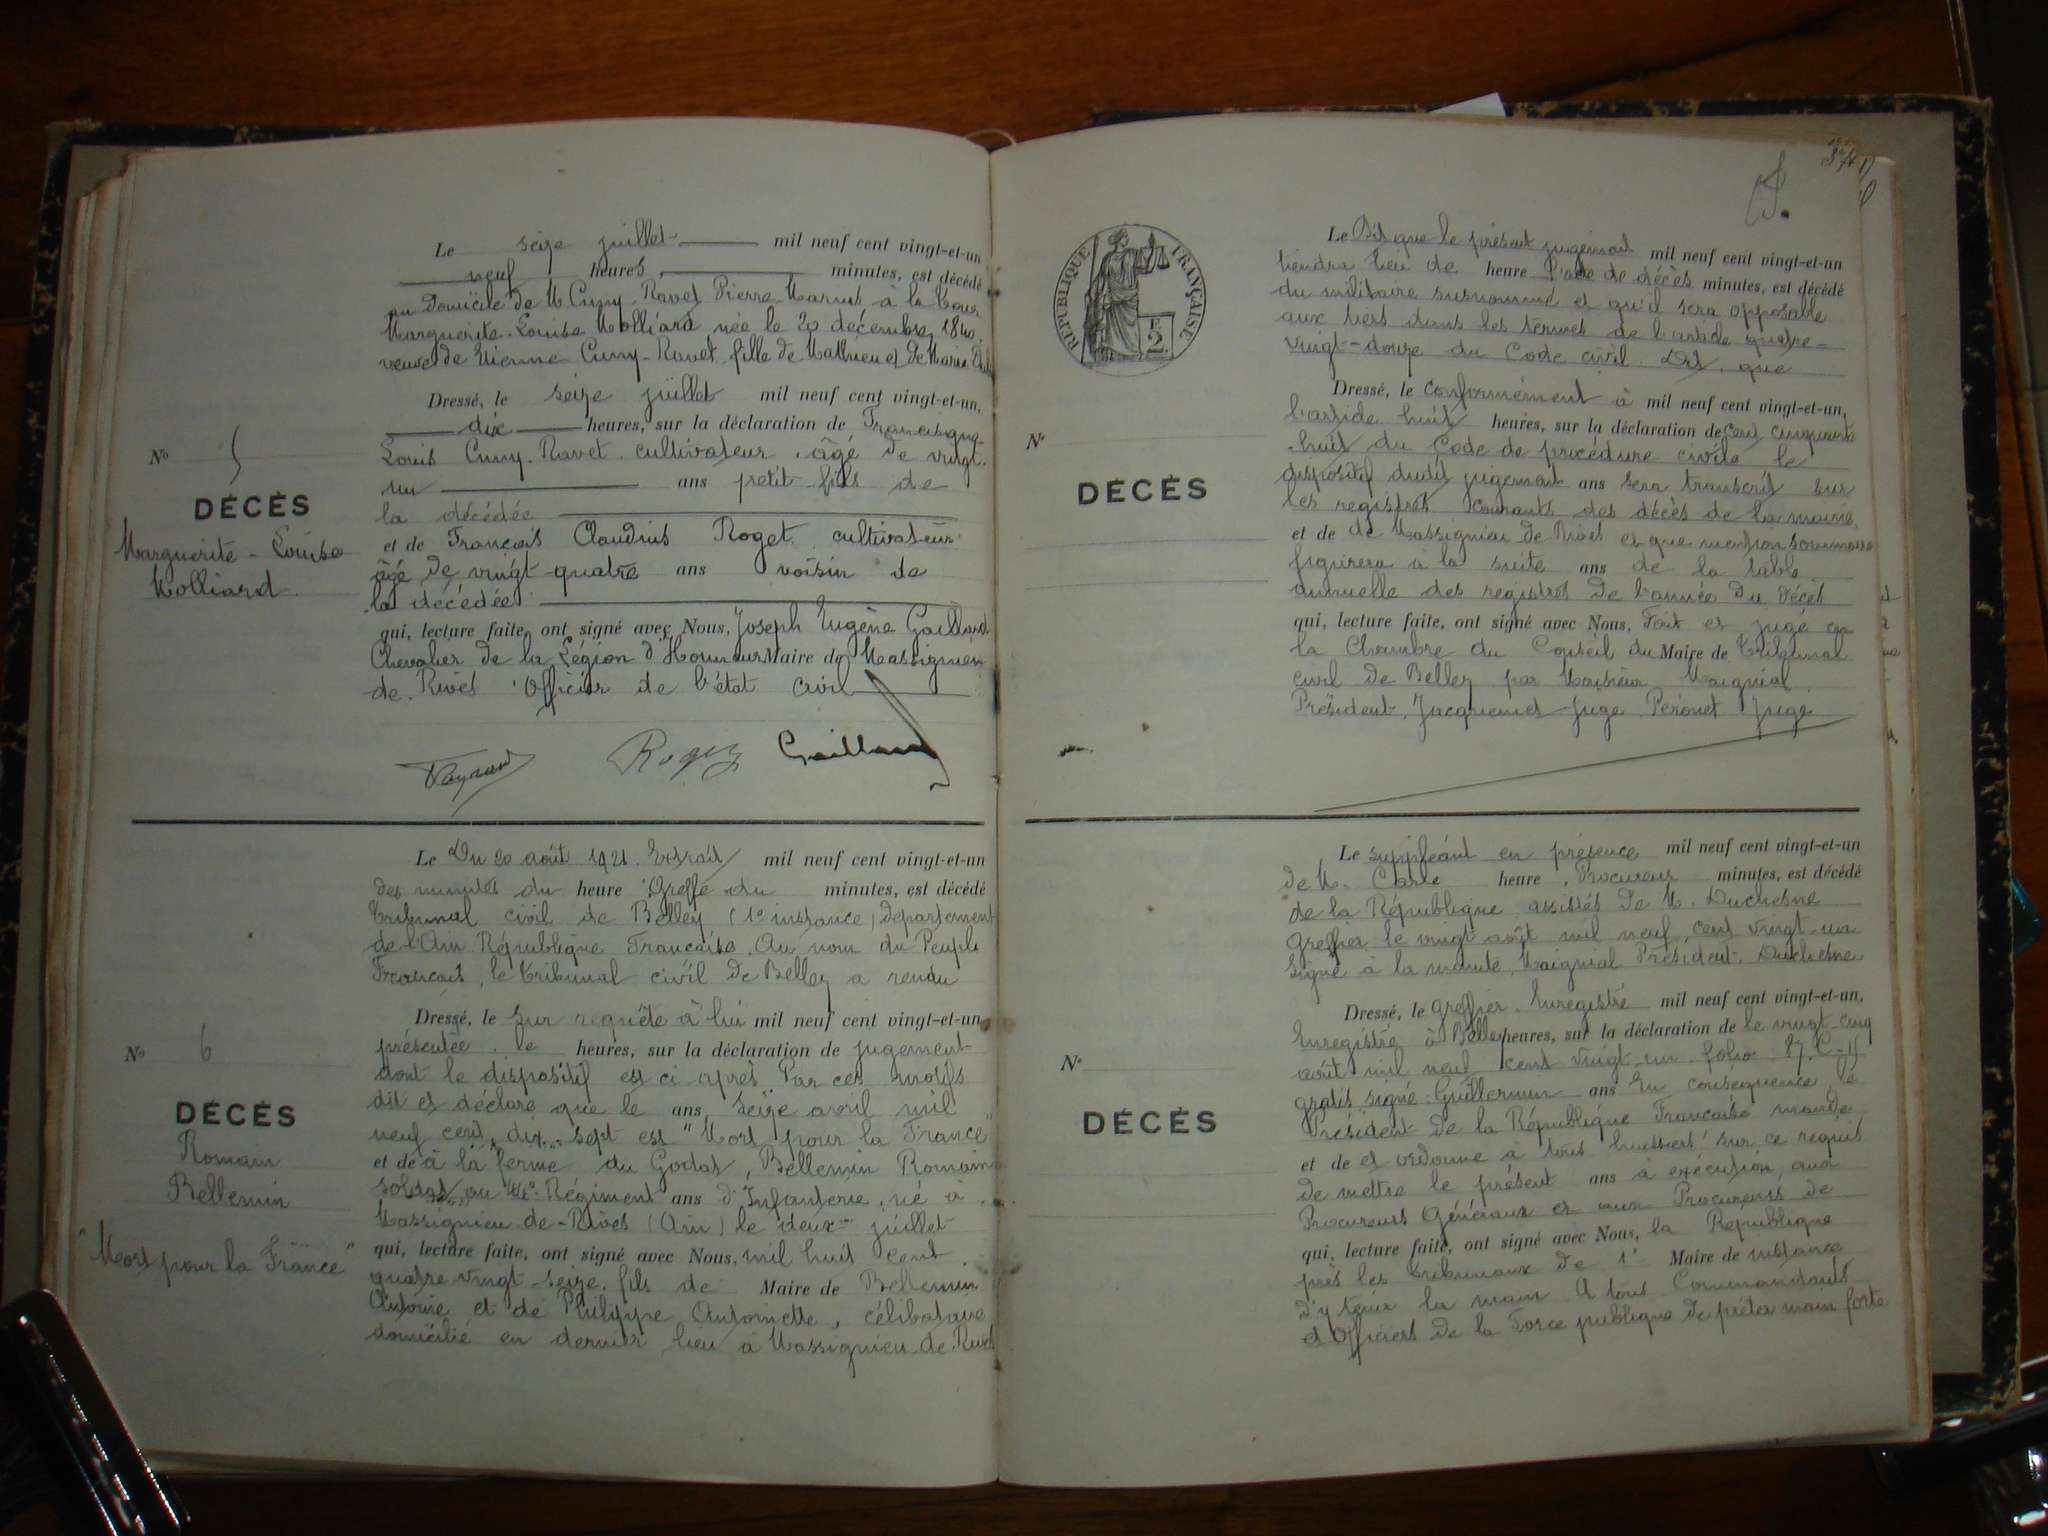 Le seize juillet mil neuf cent vingt-et-un
neuf heures, minutes, est décédé
au Domicile de M. Cuny-Ravet Pierre-Marius à la
Marguerite-Louise Molliard née le 20 décembre 1840,
veuve de Etienne Cuny-Ravet, fille de Mathieu et de Marie
Dressé, le seize juillet mil neuf cent vingt-et-un,
dix heures, sur la déclaration de Francisque
Louis Cuny-Ravet, cultivateur, âgé de vingt-
un ans petit-fils de
la décédée
et de François Claudius Roget cultivateur
âgé de vingt quatre ans voisin de
la décédée
qui, lecture faite, ont signé avec Nous, Joseph Eugène Gaillard
Chevalier de la Légion d'Honneur Maire de Massignieu
de Rives Officier de l'état civil
Nº 5
DÉCÈS
Marguerite-Louise
Molliard
Roget Gaillard
Le Du 20 août 1921. Extrait mil neuf cent vingt-et-un
des minutes du heure Greffe du minutes, est décédé
tribunal civil de Belley (1e instance) département
de l'Ain. République Française. Au nom du Peuple
Français, le tribunal civil de Belley a rendu
Dressé, le sur requête à lui mil neuf cent vingt-et-un
présentée le heures, sur la déclaration de jugement
dont le dispositif est ci après. Par ces motifs
dit et déclare que le ans, seize avril mil
neuf cent dix-sept est "Mort pour la France"
et de à la ferme du Godat, Bellemin Romain
soldat au Régiment ans d'Infanterie, né à
Massignieu-de-Rives (Ain) le deux juillet
qui, lecture faite, ont signé avec Nous, mil huit cent
quatre vingt-seize, fils de Maire de Bellemin
Antoine et de Philippe Antoinette, célibataire
domicilié en dernier lieu à Massignieu-de-Rives
Nº 6
DÉCÈS
Romain
Bellemin
"Mort pour la France"
RÉPUBLIQUE FRANÇAISE
2
Le Dit que le présent jugement mil neuf cent vingt-et-un
tiendra lieu de heure l'acte de décès minutes, est décédé
du militaire susnommé et qu'il sera opposable
aux tiers dans les termes de l'article quatre-
vingt-douze du Code civil. Dit, que
Dressé, le conformément à mil neuf cent vingt-et-un,
l'article huit heures, sur la déclaration de cent cinquante
-huit du Code de procédure civile le
dispositif dudit jugement ans sera transcrit sur
les registres courants des décès de la mairie
et de de Massignieu de Rives et que mention sommaire
figurera à la suite ans de la table
annuelle des registres de l'année du décès
qui, lecture faite, ont signé avec Nous, Fait et jugé en
la Chambre du Conseil du Maire de tribunal
civil de Belley par Monsieur Maignial,
Président, Jacquemet Juge Péronet Juge
Nº
DÉCÈS
Le suppléant en présence mil neuf cent vingt-et-un
de M. Carle heure, Procureur minutes, est décédé
de la République assistés de M. Duchesne
Greffier, le vingt août mil neuf cent vingt-un
Signé à la minute, Maignial Président. Duchesne
Dressé, le greffier. Enregistré mil neuf cent vingt-et-un,
Enregistré à Belley heures, sur la déclaration de le vingt-cinq
août mil neuf cent vingt-un folio 87. C.
gratis signé Guillermin ans En conséquence, le
Président de la République Française mande
et de et ordonne à tous huissiers sur ce requis
de mettre le présent ans à exécution, aux
Procureurs Généraux et aux Procureurs de
qui, lecture faite, ont signé avec Nous, la République
près les tribunaux de 1e Maire de instance
d'y tenir la main. A tous Commandants
et Officiers de la Force publique de prêter main forte
Nº
DÉCÈS